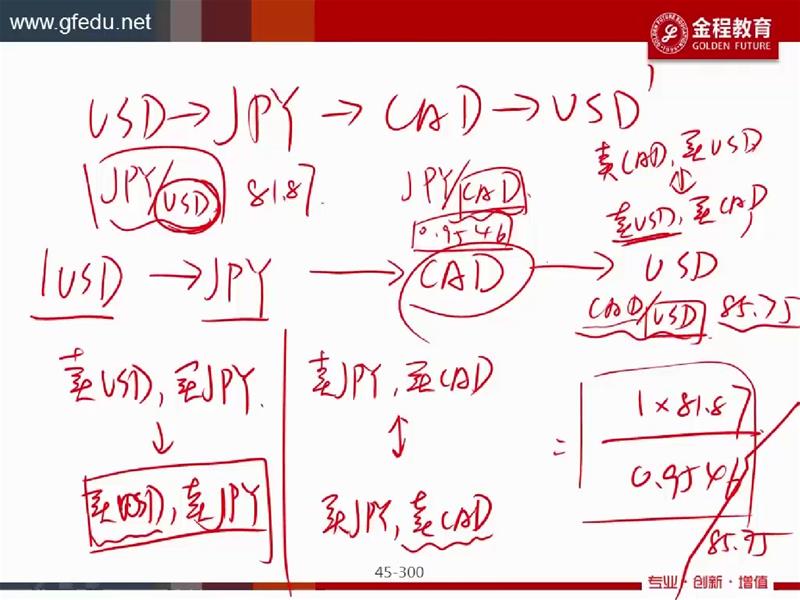 www.gfedu.net
金程教育
GOLDEN FUTURE
USD→JPY→CAD→USD
JPY/USD 81.87
JPY/CAD
0.9546
卖CAD,买USD
卖USD,买CAD
1USD→JPY→CAD→USD
CAD/USD 85.75
卖USD,买JPY
买USD,卖JPY
卖JPY,买CAD
买JPY,卖CAD
= 1×81.87
0.9546
85.75
45-300
专业·创新·增值